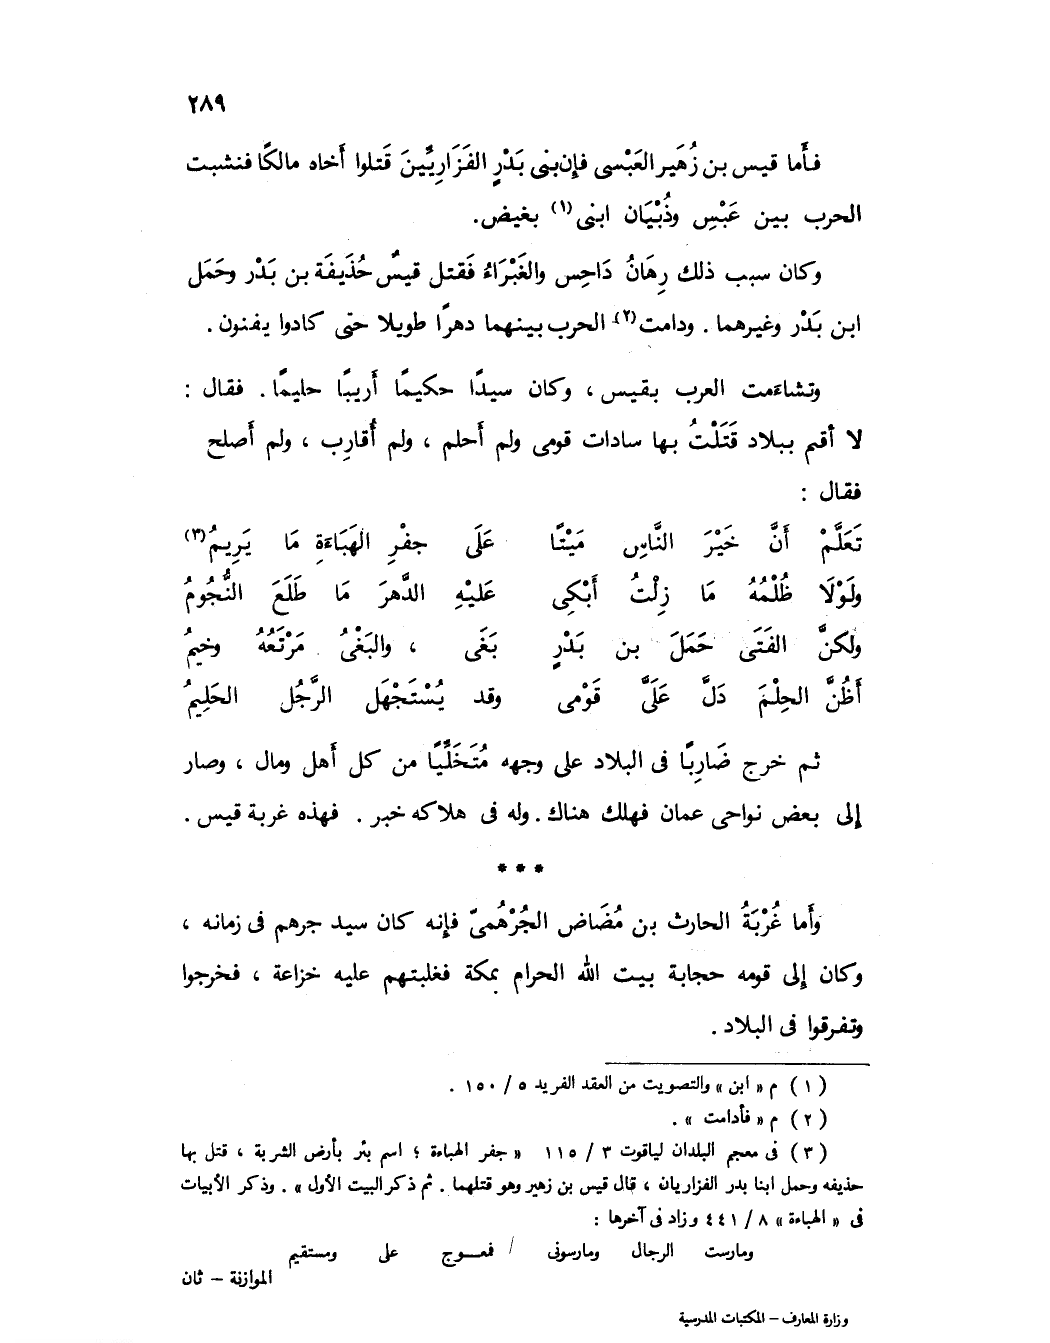 ٢٨٩
فأَما قيس بن زُهَير العَبْسى فإن بنى بَدْرٍ الفَزَارِيِّينَ قَتلوا أَخاه مالكًا فنشبت
الحرب بين عَبْسِ وذُبْيَان ابنى(١) بغيض.
وكان سبب ذلك رِهَانُ دَاحِس والغَبْرَاءُ فَقتل قيسٌ حُذَيفَة بن بَدْر وحَمَل
ابن بَدْر وغيرهما . ودامت(٢) الحرب بينهما دهرًا طويلا حتى كادوا يفنون .
وتشاءَمت العرب بقيس ، وكان سيدًا حكيمًا أَريبًا حليمًا . فقال :
لا أقم ببلاد قَتَلْتُ بها سادات قومى ولم أَحلم ، ولم أُقارِب ، ولم أَصلح
فقال :
تَعَلَّمْ أَنَّ خَيْرَ النَّاسِ مَيْتًا عَلَى جفْرِ الهَبَاءَةِ مَا يَرِيمُ(٣)
ولَوْلَا ظُلْمُهُ مَا زِلْتُ أَبْكِى عَليْهِ الدَّهرَ مَا طَلَعَ النُّجُومُ
ولكنَّ الفَتَى حَمَلَ بن بَدْرٍ بَغَى ، والبَغْىُ مَرْتَعُهُ وخيمُ
أَظُنَّ الحِلْمَ دَلَّ عَلَىَّ قَوْمى وقد يُسْتَجْهَل الرَّجُل الحَلِيمُ
ثم خرج ضَارِبًا فى البلاد على وجهه مُتَخَلِّيًا من كل أَهل ومال ، وصار
إلى بعض نواحى عمان فهلك هناك . وله فى هلاكه خبر . فهذه غربة قيس .
* * *
وأَما غُرْبَةُ الحارث بن مُضَاض الجُرْهُمىّ فإنه كان سيد جرهم فى زمانه ،
وكان إلى قومه حجابة بيت الله الحرام بمكة فغلبتهم عليه خزاعة ، فخرجوا
وتفرقوا فى البلاد .
( ١ ) م « ابن » والتصويت من العقد الفريد ٥ / ١٥٠ .
( ٢ ) م « فأدامت » .
( ٣ ) فى معجم البلدان لياقوت ٣ / ١١٥ « جفر الهباءة ؛ اسم بئر بأرض الشربة ، قتل بها
حذيفه وحمل ابنا بدر الفزاريان ، قال قيس بن زهير وهو قتلهما . ثم ذكر البيت الأول » . وذكر الأبيات
فى « الهباءة » ٨ / ٤٤١ وزاد فى آخرها :
ومارست الرجال ومارسونى / فمعوج على ومستقيم
الموازنة – ثان
وزارة المعارف – المكتبات المدرسية